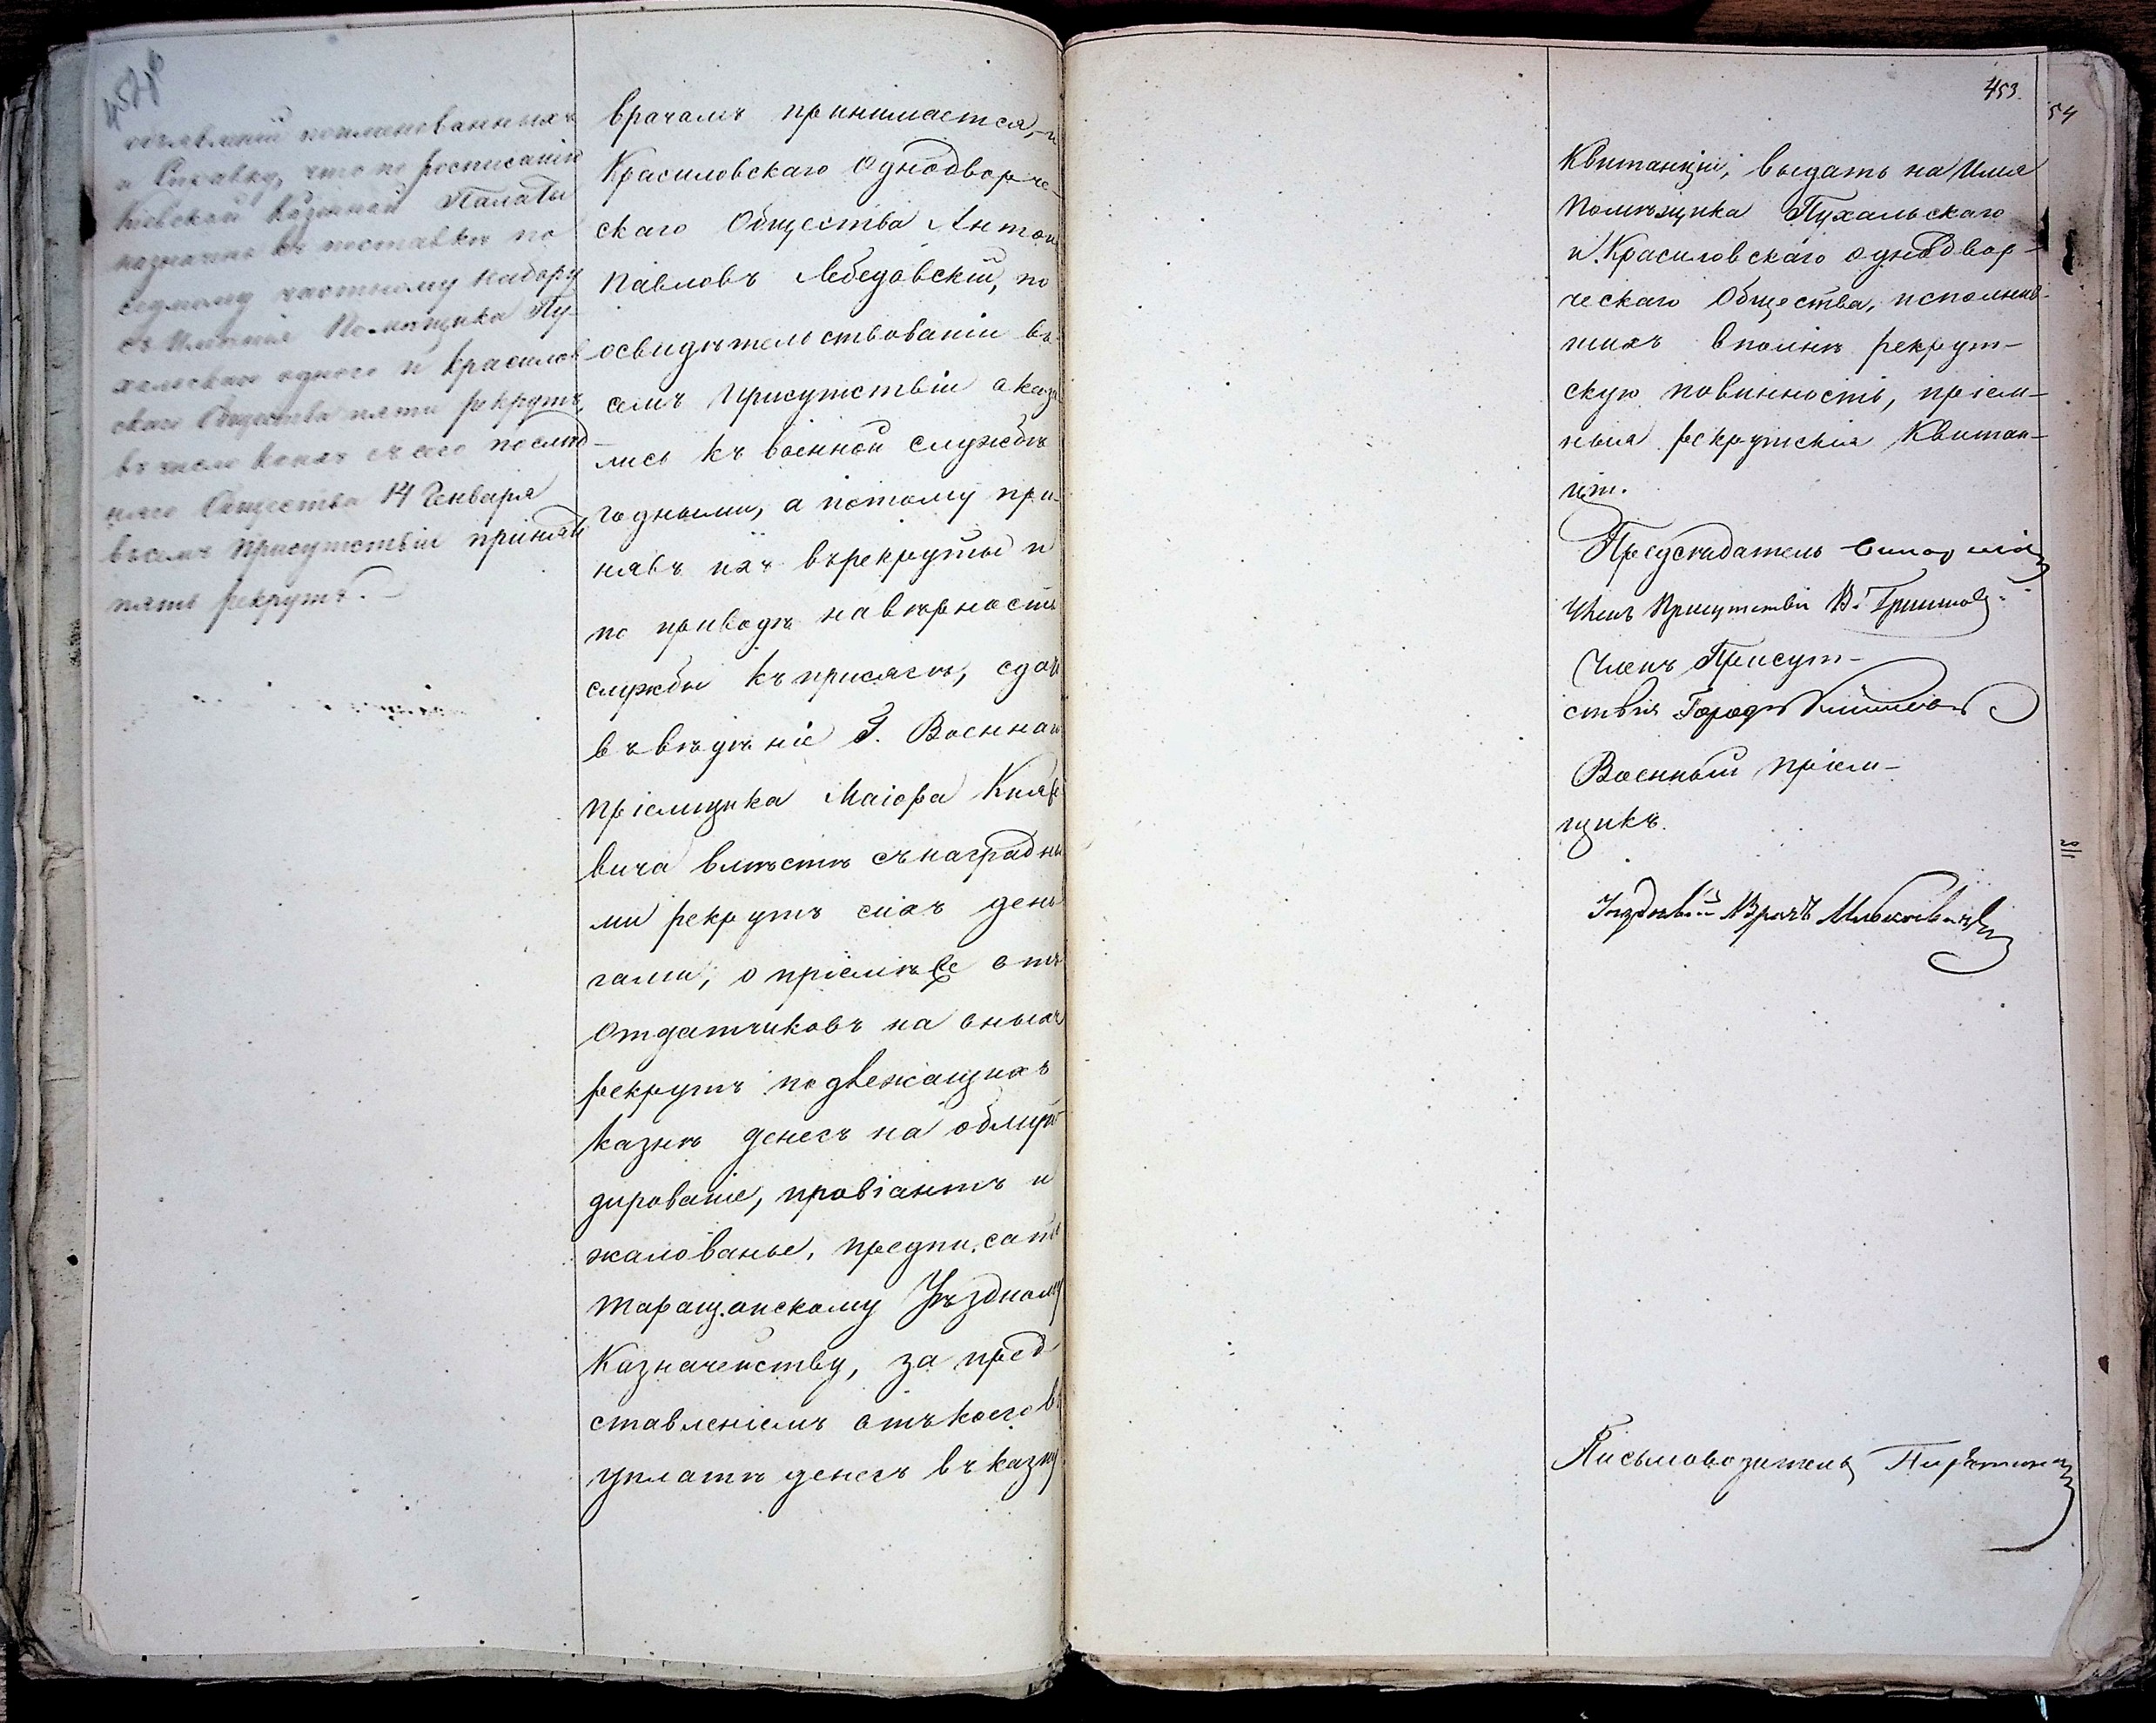 объявленій поименованныхъ
и Справку, что по росписанію
Кіевской Казенной Палаты
назначено къ поставкѣ по
седмому частному набору
съ Имѣнія Помѣщика Пу-
хальскаго одного и Красилов
скаго Общества пяти рекрутъ,
въ число коихъ съ сего послѣд
няго Общества 14 Генваря
въ семъ Присутствіи принято
пять рекрутъ.
врачамъ принимается, и
Красиловскаго Однодворче-
скаго Общества Антонъ
Павловъ Лебедовскій, по
освидѣтельствованіи въ
семъ Присутствіи оказа
лись къ военной службѣ
годными, а потому при-
нявъ ихъ въ рекруты и
по приводѣ на вѣрность
службы къ присягѣ, сдать
въ вѣдѣніе Г. Военнаго
пріемщика Маіора Княже
вича вмѣстѣ съ наградны
ми рекрутъ сихъ день
гами; о пріемѣ же отъ
отдатчиковъ на оныхъ
рекрутъ подлежащихъ
казнѣ денегъ на обмун-
дированіе, провіантъ и
жалованье, предписать
Таращанскому Уѣздному
Казначейству, за пред
ставленіемъ отъ коего въ
уплатѣ денегъ въ казну
453.
54
Квитанціи, выдать на Имя
Помѣщика Пухальскаго
и Красиловскаго однодвор-
ческаго Общества, исполнив-
шихъ вполнѣ рекрут-
скую повинность, пріем-
ныя рекрутскія Квитан-
ціи.
Предсѣдатель
Членъ Присутствія
Членъ Присут-
ствія Город
Военный пріем-
щикъ.
Уѣздный Врачъ
Письмоводитель